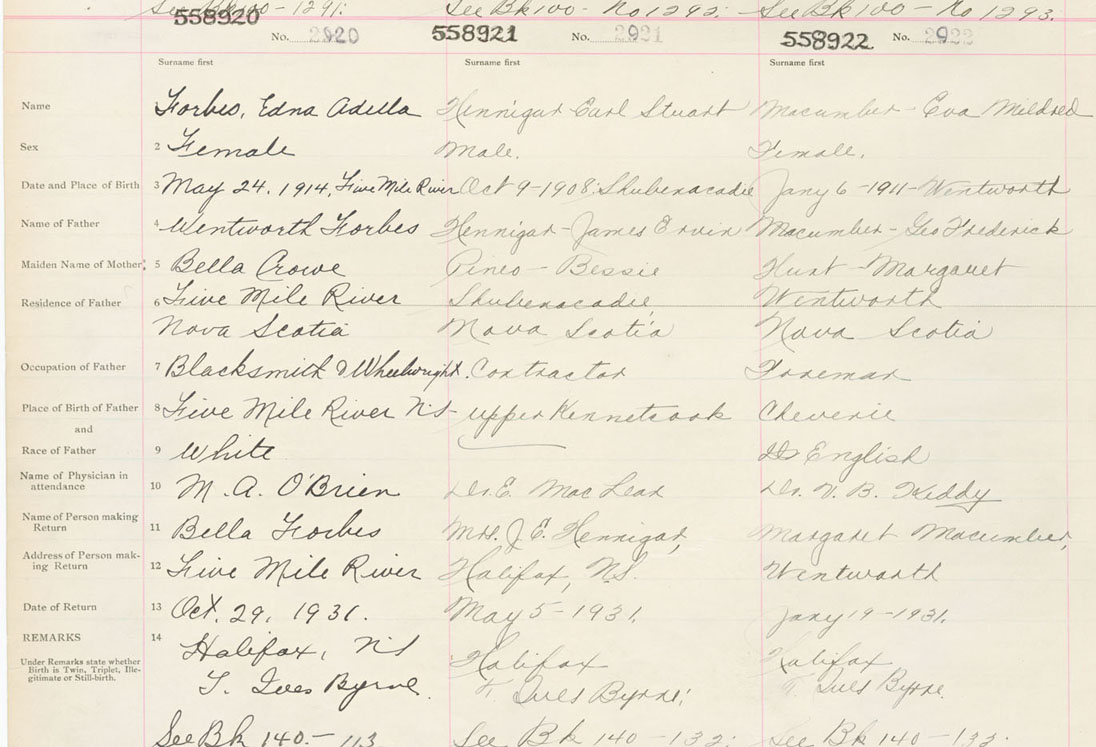 See Bk 100 - 1291. See Bk 100 - No 1292. See Bk 100 - No 1293.
558920 No. 2920 558921 No. 2921 558922 No. 2922
Surname first Surname first Surname first
Name Forbes, Edna Adella Hennigar Carl Stuart Macumber - Eva Mildred
Sex 2 Female Male. Female.
Date and Place of Birth 3 May 24. 1914, Five Mile River Oct 9 - 1908. Shubenacadie Jany 6 - 1911 - Wentworth
Name of Father 4 Wentworth Forbes Hennigar - James Ervin Macumber - Geo Frederick
Maiden Name of Mother: 5 Bella Crowe Pineo - Bessie Hunt - Margaret
Residence of Father 6 Five Mile River Shubenacadie, Wentworth
Nova Scotia Nova Scotia Nova Scotia
Occupation of Father 7 Blacksmith & Wheelwright. Contractor Foreman
Place of Birth of Father 8 Five Mile River N.S. Upper Kennetcook Cheverie
and
Race of Father 9 White English
Name of Physician in
attendance 10 M. A. O'Brien Dr. E. MacLean Dr. V. B.
Name of Person making
Return 11 Bella Forbes Mrs. J. E. Hennigar, Margaret Macumber,
Address of Person mak-
ing Return 12 Five Mile River Halifax, N.S. Wentworth
Date of Return 13 Oct. 29, 1931. May 5 - 1931. Jany 19 - 1931.
REMARKS 14 Halifax, N.S Halifax Halifax
Under Remarks state whether
Birth is Twin, Triplet, Ille-
gitimate or Still-birth.
T. Ives Byrne. T. Ives Byrne. T. Ives Byrne.
See Bk 140. - 113 See Bk 140 - 132. See Bk 140 - 133.